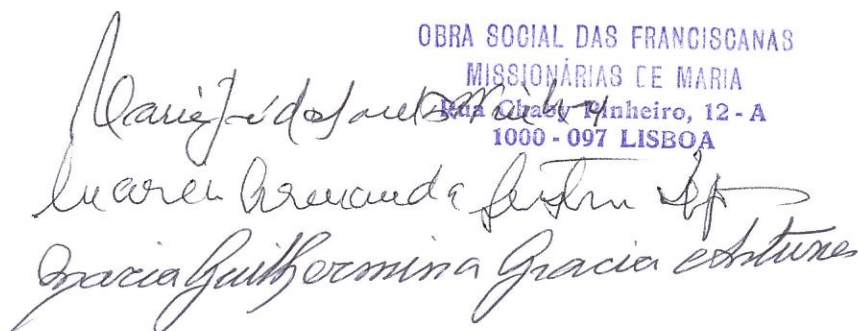 OBRA SOCIAL DAS FRANCISCANAS
MISSIONÁRIAS DE MARIA
Rua Chaby Pinheiro, 12 - A
1000 - 097 LISBOA
Maria
Maria Armanda
Maria Guilhermina Gracia Antunes